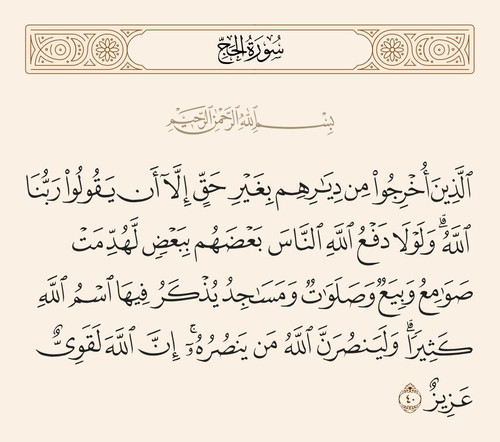 سُورَةُ الحَجِّ
بِسْمِ اللَّهِ الرَّحْمَٰنِ الرَّحِيمِ
ٱلَّذِينَ أُخْرِجُوا۟ مِن دِيَـٰرِهِم بِغَيْرِ حَقٍّ إِلَّآ أَن يَقُولُوا۟ رَبُّنَا
ٱللَّهُ ۗ وَلَوْلَا دَفْعُ ٱللَّهِ ٱلنَّاسَ بَعْضَهُم بِبَعْضٍ لَّهُدِّمَتْ
صَوَٰمِعُ وَبِيَعٌ وَصَلَوَٰتٌ وَمَسَـٰجِدُ يُذْكَرُ فِيهَا ٱسْمُ ٱللَّهِ
كَثِيرًا ۗ وَلَيَنصُرَنَّ ٱللَّهُ مَن يَنصُرُهُۥٓ ۚ إِنَّ ٱللَّهَ لَقَوِىٌّ
عَزِيزٌ ٤٠